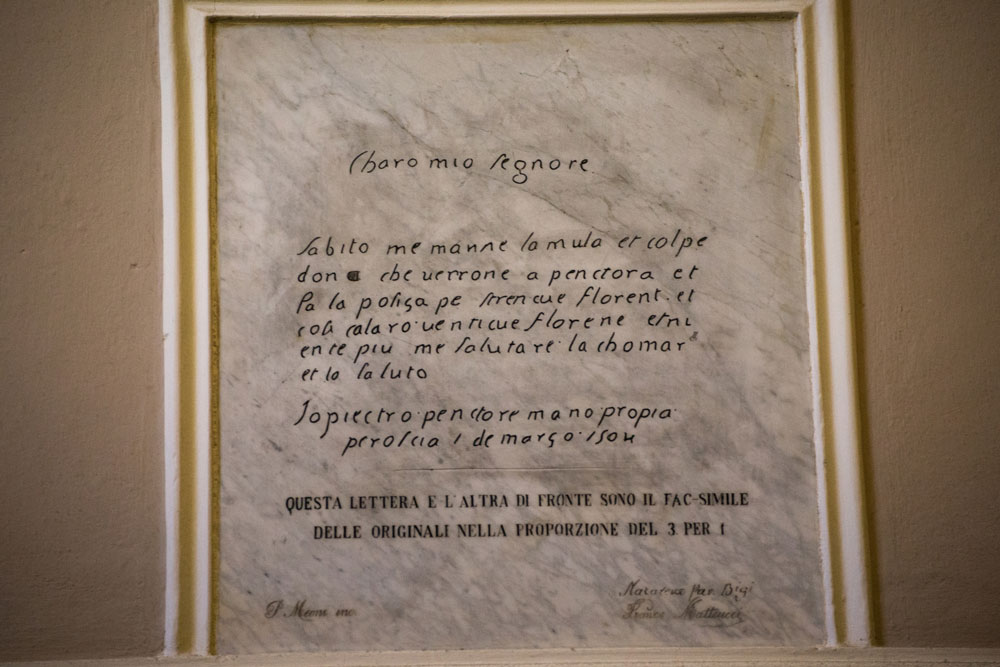 Charo mio segnore
sabito me manne la mula et colpe
don che uerrone a penctora et
fa la polisa pe strencue florent. et
cosi calaro uenticue florene etni
ente piu me salutare la chomar
et lo saluto
Jo piectro penctore mano propia
peroscia 1 de março 1504
QUESTA LETTERA E L'ALTRA DI FRONTE SONO IL FAC-SIMILE
DELLE ORIGINALI NELLA PROPORZIONE DEL 3 PER 1
P. Meoni inc.
Bigi
Matteucci